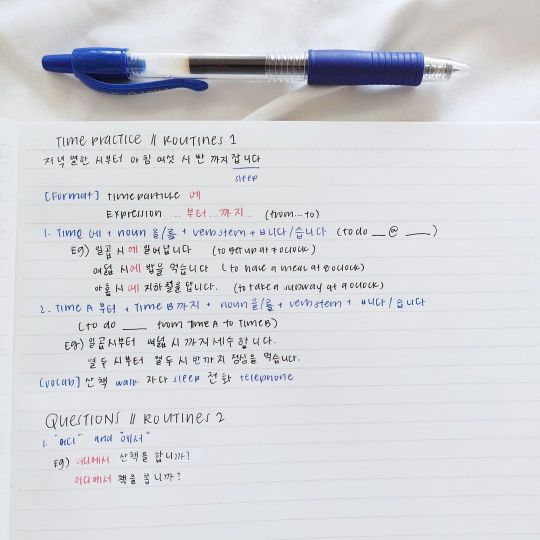 TIME PRACTICE // ROUTINES 1
저녁 열한 시부터 아침 여섯 시 반 까지 잡니다
sleep
[Format] time particle 에
Expression ...부터...까지... (from...to)
1. Time 에 + noun 을/를 + verb stem + ㅂ니다/습니다 (to do __ @ __)
Eg) 일곱 시에 일어납니다 (to get up at 7 o'clock)
여덟 시에 밥을 먹습니다 (to have a meal at 8 o'clock)
아홉 시에 지하철을 탑니다. (to take a subway at 9 o'clock)
2. Time A 부터 + Time B 까지 + noun 을/를 + verb stem + ㅂ니다/습니다
(to do __ from Time A to Time B)
Eg) 일곱 시부터 여덟 시 까지 세수합니다.
열두 시부터 열두 시 반까지 점심을 먹습니다.
[vocab] 산책 walk 자다 sleep 전화 telephone
QUESTIONS // ROUTINES 2
1. "어디" and "에서"
Eg) 어디에서 산책을 합니까?
어디에서 책을 봅니까?